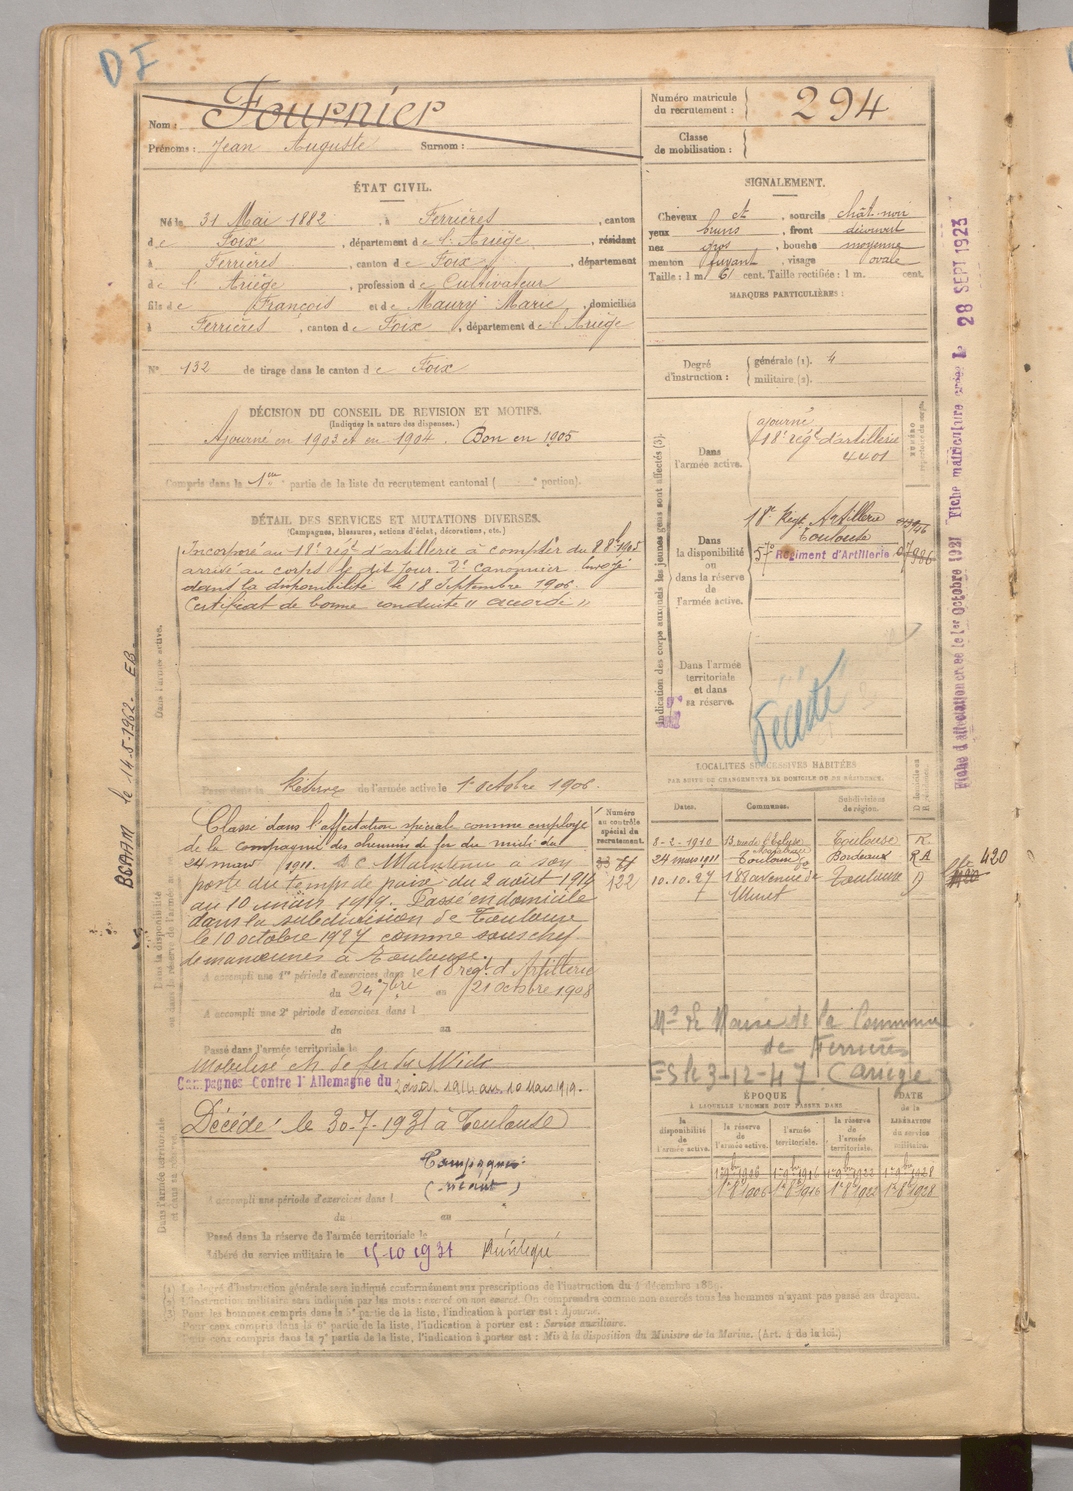 DI
Nom : Fournier
Prénoms : Jean Auguste Surnom :
Numéro matricule du recrutement : 294
Classe de mobilisation :
ÉTAT CIVIL.
Né le 31 Mai 1882, à Ferrières, canton
de Foix, département de l'Ariège, résidant
à Ferrières, canton de Foix, département
de l'Ariège, profession de Cultivateur
fils de François et de Maury Marie, domiciliés
à Ferrières, canton de Foix, département de l'Ariège
N° 132 de tirage dans le canton de Foix
SIGNALEMENT.
Cheveux et, sourcils chât-noir
yeux bruns, front découvert
nez gros, bouche moyenne
menton fuyant, visage ovale
Taille : 1 m. 61 cent. Taille rectifiée : 1 m. cent.
MARQUES PARTICULIÈRES :
Degré d'instruction : générale (1). 4
militaire (2).
DÉCISION DU CONSEIL DE REVISION ET MOTIFS.
(Indiquer la nature des dispenses.)
Ajourné en 1903 et en 1904. Bon en 1905
Compris dans la 1re partie de la liste du recrutement cantonal ( portion).
DÉTAIL DES SERVICES ET MUTATIONS DIVERSES.
(Campagnes, blessures, actions d'éclat, décorations, etc.)
Incorporé au 18e régt d'artillerie à compter du 8 8bre 1905
arrivé au corps le dit jour. 2e canonnier. Envoyé
dans la disponibilité le 18 Septembre 1906.
Certificat de bonne conduite "accordé"
Dans l'armée active.
Passé dans la Réserve de l'armée active le 1er octobre 1906.
Indication des corps auxquels les jeunes gens sont affectés (3).
Dans l'armée active.
ajourné
18e régt d'artillerie
4401
Dans la disponibilité ou dans la réserve de l'armée active.
18e Régt Artillerie
Toulouse
57e Régiment d'Artillerie
Dans l'armée territoriale et dans sa réserve.
Décédé
Classé dans l'affectation spéciale comme employé
de la compagnie des chemins de fer du midi du
24 mars 1911. Maintenu à son
poste du temps de paix du 2 août 1914
au 10 mars 1919. Passé en domicile
dans la subdivision de Toulouse
le 10 octobre 1927 comme sous chef
de manœuvres à Toulouse.
Numéro au contrôle spécial du recrutement.
122
A accompli une 1re période d'exercices dans le 18 régt d'Artillerie
du 24 7bre au 21 octobre 1908
A accompli une 2e période d'exercices dans l
du au
Passé dans l'armée territoriale le
Mobilisé ch de fer du Midi
Campagnes Contre l'Allemagne du 2 août 1914 au 10 Mars 1919.
Décédé le 30-7-1931 à Toulouse
Campagnes
(néant)
A accompli une période d'exercices dans l
du au
Passé dans la réserve de l'armée territoriale le
Libéré du service militaire le 15-10 1931
LOCALITÉS SUCCESSIVES HABITÉES
PAR SUITE DE CHANGEMENTS DE DOMICILE OU DE RÉSIDENCE.
Dates. Communes. Subdivisions de région.
8-2-1910 13 rue de l'Eglise Toulouse R
24 mars 1911 Toulouse Bordeaux RA
10.10.27 188 avenue de Muret Toulouse D
420
Mr le Maire de la Commune
de Ferrières
ES le 3-12-47 (Ariège)
ÉPOQUE
À LAQUELLE L'HOMME DOIT PASSER DANS
la disponibilité de l'armée active. la réserve de l'armée active. l'armée territoriale. la réserve de l'armée territoriale.
DATE de la LIBÉRATION du service militaire.
1er 8bre 1906 1er 8bre 1928
Fiche d'affectation créée le 1er Octobre 1921 Fiche matriculaire créée le 28 SEPT 1923
BCAAM le 14-5-1962 - EB
Le degré d'instruction générale sera indiqué conformément aux prescriptions de l'instruction du 4 décembre 1889.
L'instruction militaire sera indiquée par les mots : exercé ou non exercé. On comprendra comme non exercés tous les hommes n'ayant pas passé au drapeau.
Pour les hommes compris dans la 5e partie de la liste, l'indication à porter est : Ajourné.
Pour ceux compris dans la 6e partie de la liste, l'indication à porter est : Service auxiliaire.
Pour ceux compris dans la 7e partie de la liste, l'indication à porter est : Mis à la disposition du Ministre de la Marine. (Art. 4 de la loi.)